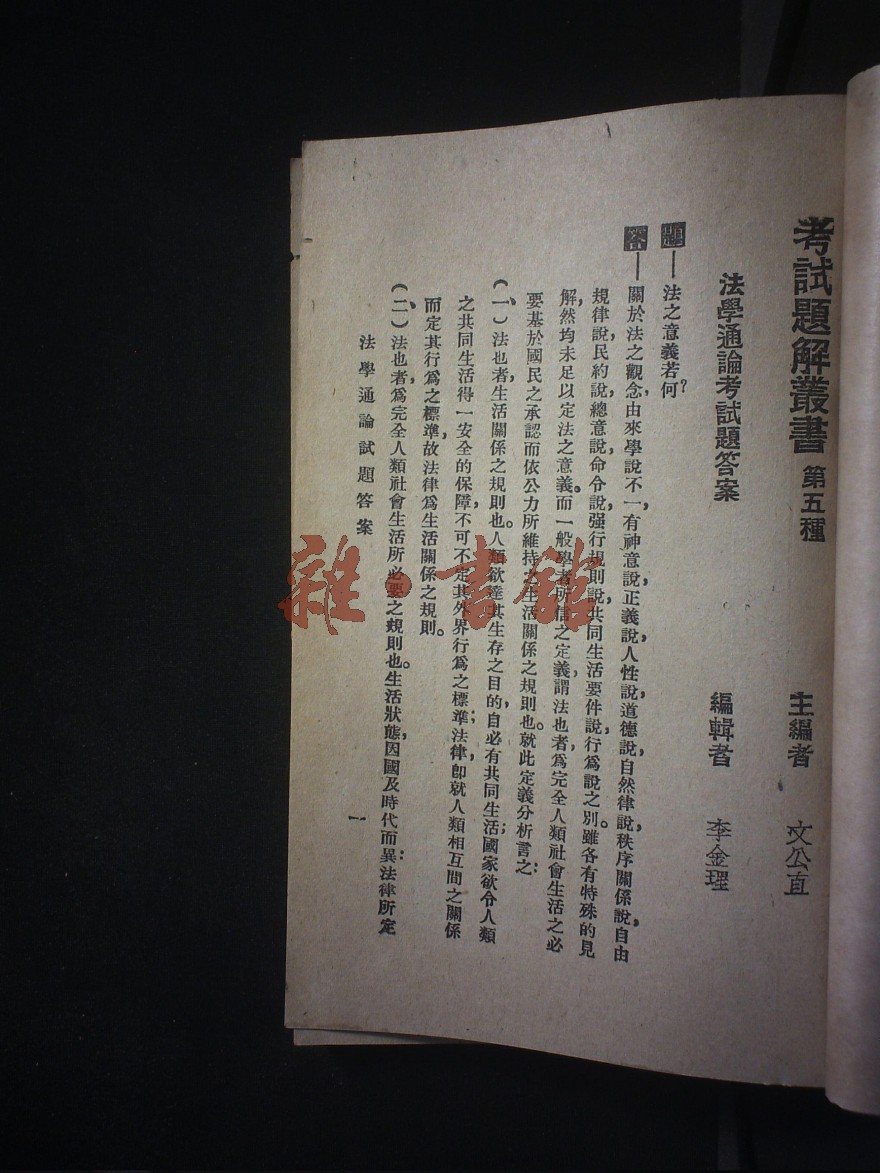 考試題解叢書 第五種
主編者 文公直
法學通論考試題答案
編輯者 李金理
題——法之意義若何?
答——關於法之觀念,由來學說不一,有神意說,正義說,人性說,道德說,自然律說,秩序關係說,自由
規律說,民約說,總意說,命令說,强行規則說,共同生活要件說,行爲說之別。雖各有特殊的見
解,然均未足以定法之意義。而一般學者所信之定義,謂法也者,爲完全人類社會生活之必
要,基於國民之承認而依公力所維持之生活關係之規則也。就此定義分析言之:
(一)法也者,生活關係之規則也。人類欲達其生存之目的,自必有共同生活;國家欲令人類
之共同生活得一安全的保障,不可不定其外界行爲之標準;法律,卽就人類相互間之關係
而定其行爲之標準,故法律爲生活關係之規則。
(二)法也者,爲完全人類社會生活所必要之規則也。生活狀態,因國及時代而異:法律所定
法學通論試題答案
一
雜·書館